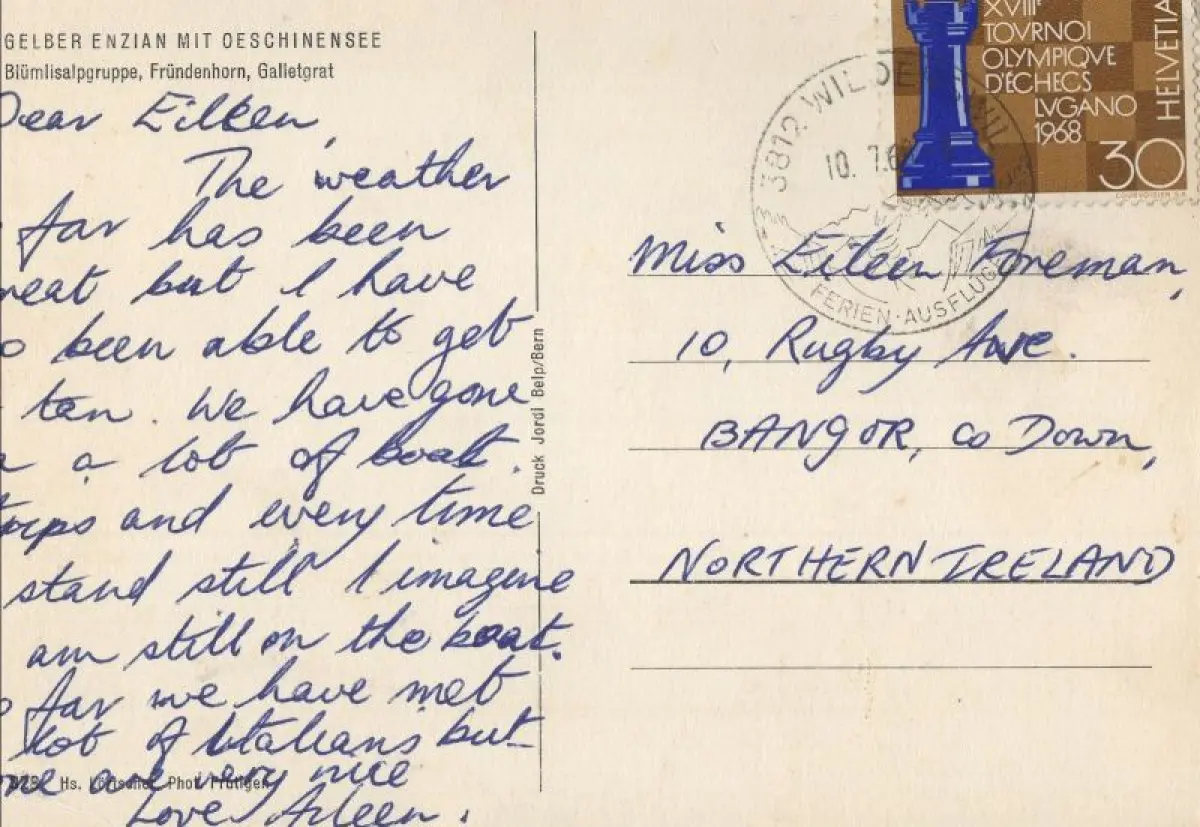 GELBER ENZIAN MIT OESCHINENSEE
Blümlisalpgruppe, Fründenhorn, Galletgrat
Dear Eileen,
The weather
far has been
reat but I have
o been able to get
tan. We have gone
a lot of boat
trips and every time
stand still I imagine
am still on the boat.
o far we have met
lot of Italians but
are very nice
Love Aileen.
Hs. Phot. Frutigen
Druck Jordi Belp/Bern
XVIIIe
TOVRNOI
OLYMPIQVE
D'ÉCHECS
LVGANO
1968
30
HELVETIA
COURVOISIER S.A.
3812 WILDERSWIL
10. 7.6
FERIEN-AUSFLÜGE
Miss Eileen Foreman,
10, Rugby Ave.
BANGOR, Co Down,
NORTHERN IRELAND